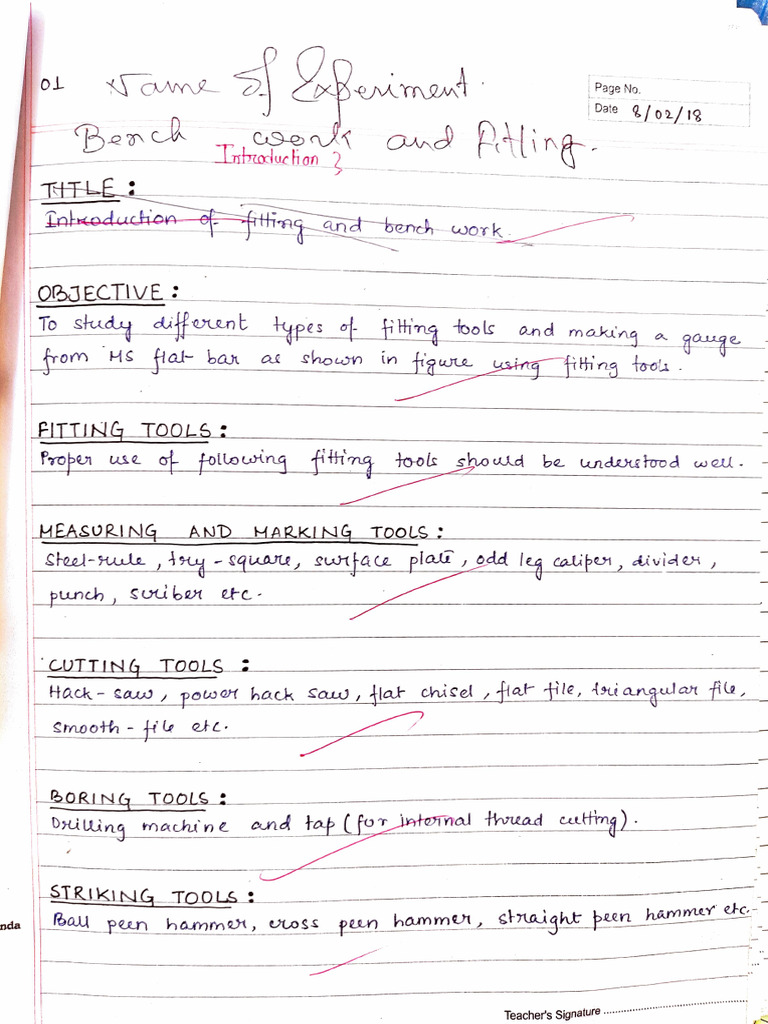 01 Name of Experiment.
Page No.
Date 8/02/18
Bench work and fitling.
Introduction
TITLE :
Introduction of fitting and bench work.
OBJECTIVE :
To study different types of fitting tools and making a gauge
from MS flat bar as shown in figure using fitting tools.
FITTING TOOLS :
Proper use of following fitting tools should be understood well.
MEASURING AND MARKING TOOLS :
Steel-rule, try-square, surface plate, odd leg caliper, divider,
punch, scriber etc.
CUTTING TOOLS :
Hack-saw, power hack saw, flat chisel, flat file, triangular file,
smooth-file etc.
BORING TOOLS :
Drilling machine and tap (for internal thread cutting).
STRIKING TOOLS :
Ball peen hammer, cross peen hammer, straight peen hammer etc.
nda
Teacher's Signature